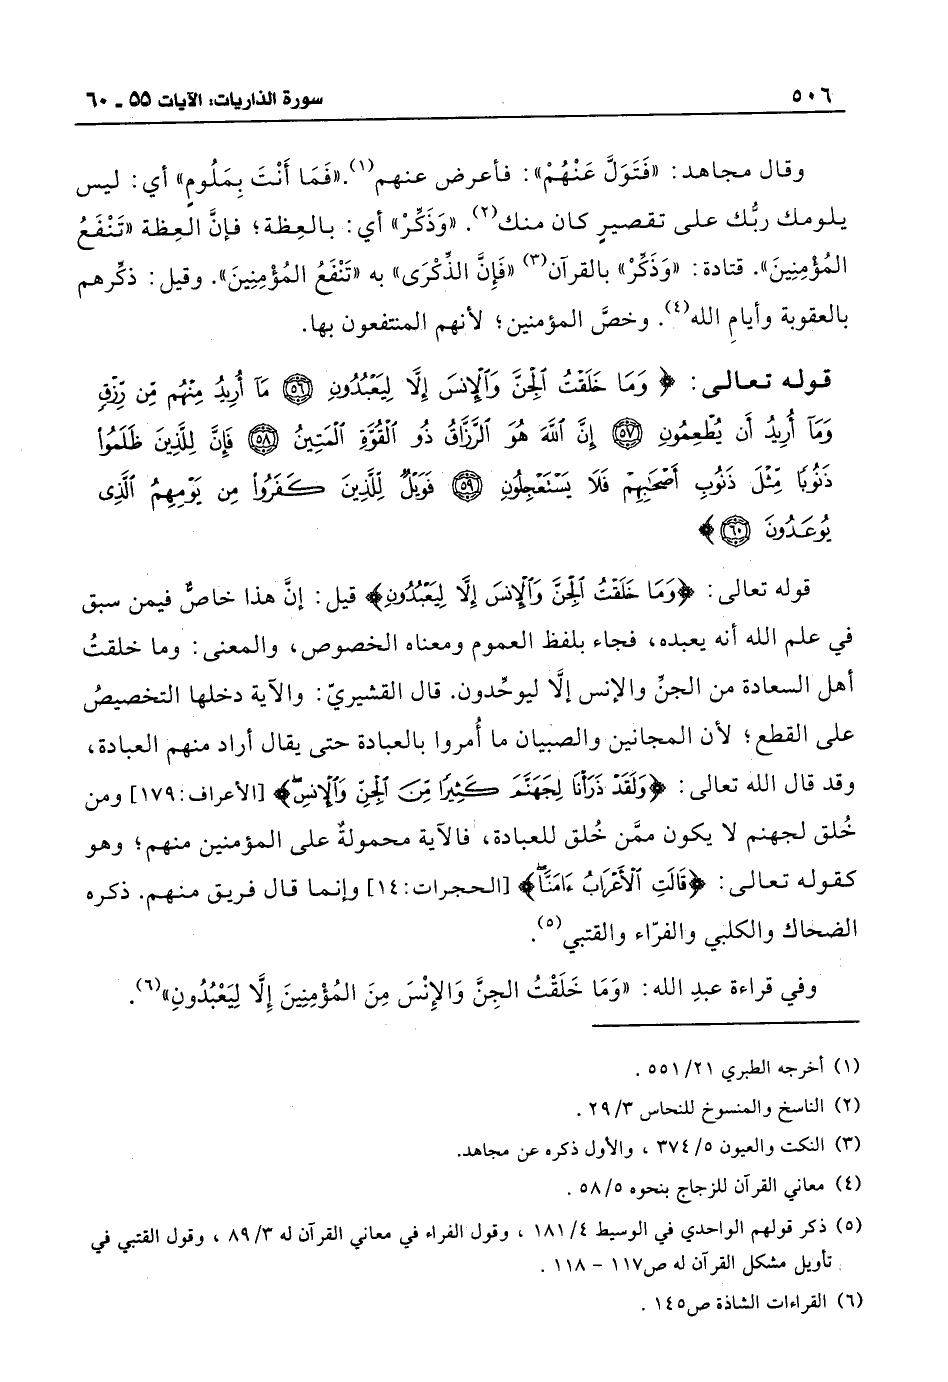 ٥٠٦ سورة الذاريات: الآيات ٥٥ ـ ٦٠
وقال مجاهد: «فَتَوَلَّ عَنْهُمْ»: فأعرض عنهم(١). «فَمَا أَنْتَ بِمَلُومٍ» أي: ليس
يلومك ربُّك على تقصيرٍ كان منك(٢). «وَذَكِّرْ» أي: بالعِظة؛ فإنَّ العِظة «تَنْفَعُ
المُؤْمِنِينَ». قتادة: «وَذَكِّرْ» بالقرآن(٣) «فَإِنَّ الذِّكْرَى» به «تَنْفَعُ المُؤْمِنِينَ». وقيل: ذكِّرهم
بالعقوبة وأيامِ الله(٤). وخصَّ المؤمنين؛ لأنهم المنتفعون بها.
قوله تعالى: ﴿وَمَا خَلَقْتُ ٱلْجِنَّ وَٱلْإِنسَ إِلَّا لِيَعْبُدُونِ ٥٦ مَآ أُرِيدُ مِنْهُم مِّن رِّزْقٍ
وَمَآ أُرِيدُ أَن يُطْعِمُونِ ٥٧ إِنَّ ٱللَّهَ هُوَ ٱلرَّزَّاقُ ذُو ٱلْقُوَّةِ ٱلْمَتِينُ ٥٨ فَإِنَّ لِلَّذِينَ ظَلَمُوا۟
ذَنُوبًا مِّثْلَ ذَنُوبِ أَصْحَٰبِهِمْ فَلَا يَسْتَعْجِلُونِ ٥٩ فَوَيْلٌ لِّلَّذِينَ كَفَرُوا۟ مِن يَوْمِهِمُ ٱلَّذِى
يُوعَدُونَ ٦٠﴾
قوله تعالى: ﴿وَمَا خَلَقْتُ ٱلْجِنَّ وَٱلْإِنسَ إِلَّا لِيَعْبُدُونِ﴾ قيل: إنَّ هذا خاصٌّ فيمن سبق
في علم الله أنه يعبده، فجاء بلفظ العموم ومعناه الخصوص، والمعنى: وما خلقتُ
أهل السعادة من الجنِّ والإنس إلَّا ليوحِّدون. قال القشيريّ: والآية دخلها التخصيصُ
على القطع؛ لأن المجانين والصبيان ما أُمروا بالعبادة حتى يقال أراد منهم العبادة،
وقد قال الله تعالى: ﴿وَلَقَدْ ذَرَأْنَا لِجَهَنَّمَ كَثِيرًا مِّنَ ٱلْجِنِّ وَٱلْإِنسِ﴾ [الأعراف: ١٧٩] ومن
خُلق لجهنم لا يكون ممَّن خُلق للعبادة، فالآية محمولةٌ على المؤمنين منهم؛ وهو
كقوله تعالى: ﴿قَالَتِ ٱلْأَعْرَابُ ءَامَنَّا﴾ [الحجرات: ١٤] وإنما قال فريق منهم. ذكره
الضحاك والكلبي والفرّاء والقتبي(٥).
وفي قراءة عبدِ الله: «وَمَا خَلَقْتُ الجِنَّ وَالإِنْسَ مِنَ المُؤْمِنِينَ إِلَّا لِيَعْبُدُونِ»(٦).
(١) أخرجه الطبري ٢١/ ٥٥١ .
(٢) الناسخ والمنسوخ للنحاس ٣/ ٢٩ .
(٣) النكت والعيون ٥/ ٣٧٤ ، والأول ذكره عن مجاهد.
(٤) معاني القرآن للزجاج بنحوه ٥/ ٥٨ .
(٥) ذكر قولهم الواحدي في الوسيط ٤/ ١٨١ ، وقول الفراء في معاني القرآن له ٣/ ٨٩ ، وقول القتبي في
تأويل مشكل القرآن له ص١١٧ - ١١٨ .
(٦) القراءات الشاذة ص١٤٥ .